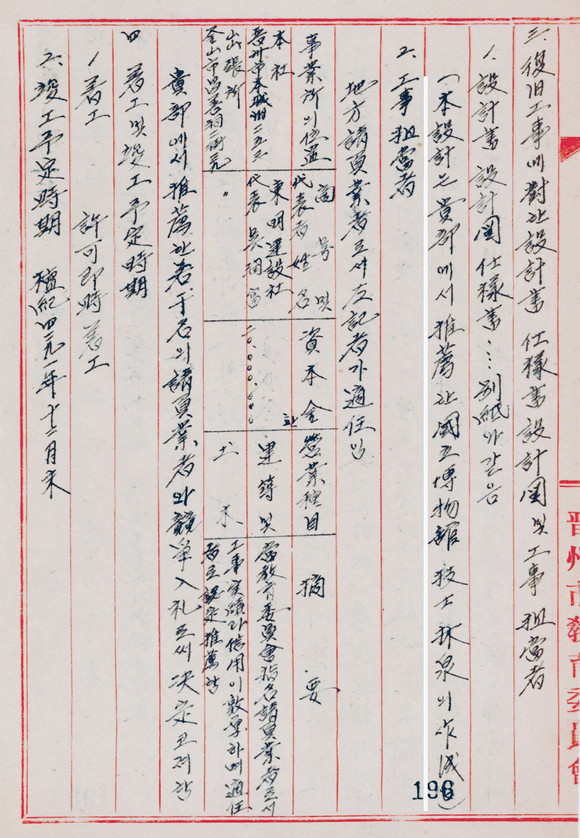 三. 復旧工事에 對한 設計書 仕様書 設計図 및 工事 担當者
1. 設計書 設計図 仕様書 … 別紙와 같음
(本設計는 貴部에서 推薦한 國立博物館 技士 林泉의 作成)
2. 工事 担當者
地方請負業者로서 左記者가 適任임
事業所의 位置
商号 및 代表者 姓名
資本金
営業種目
摘要
本社
晋州市本城洞
出張所
東明建設社
代表
建築 및 土木
當教育委員會 指名請負業者로서
工事 実績과 信用이 敦厚하며 適任
者로 認定 推薦함
貴部에서 推薦한 若干名의 請負業者와 競争入札로써 决定코저함
四 着工 및 竣工 予定時期
1 着工 許可即時 着工
2. 竣工予定時期 檀紀 四二九一年 十二月末
晋州市教育委員會
196